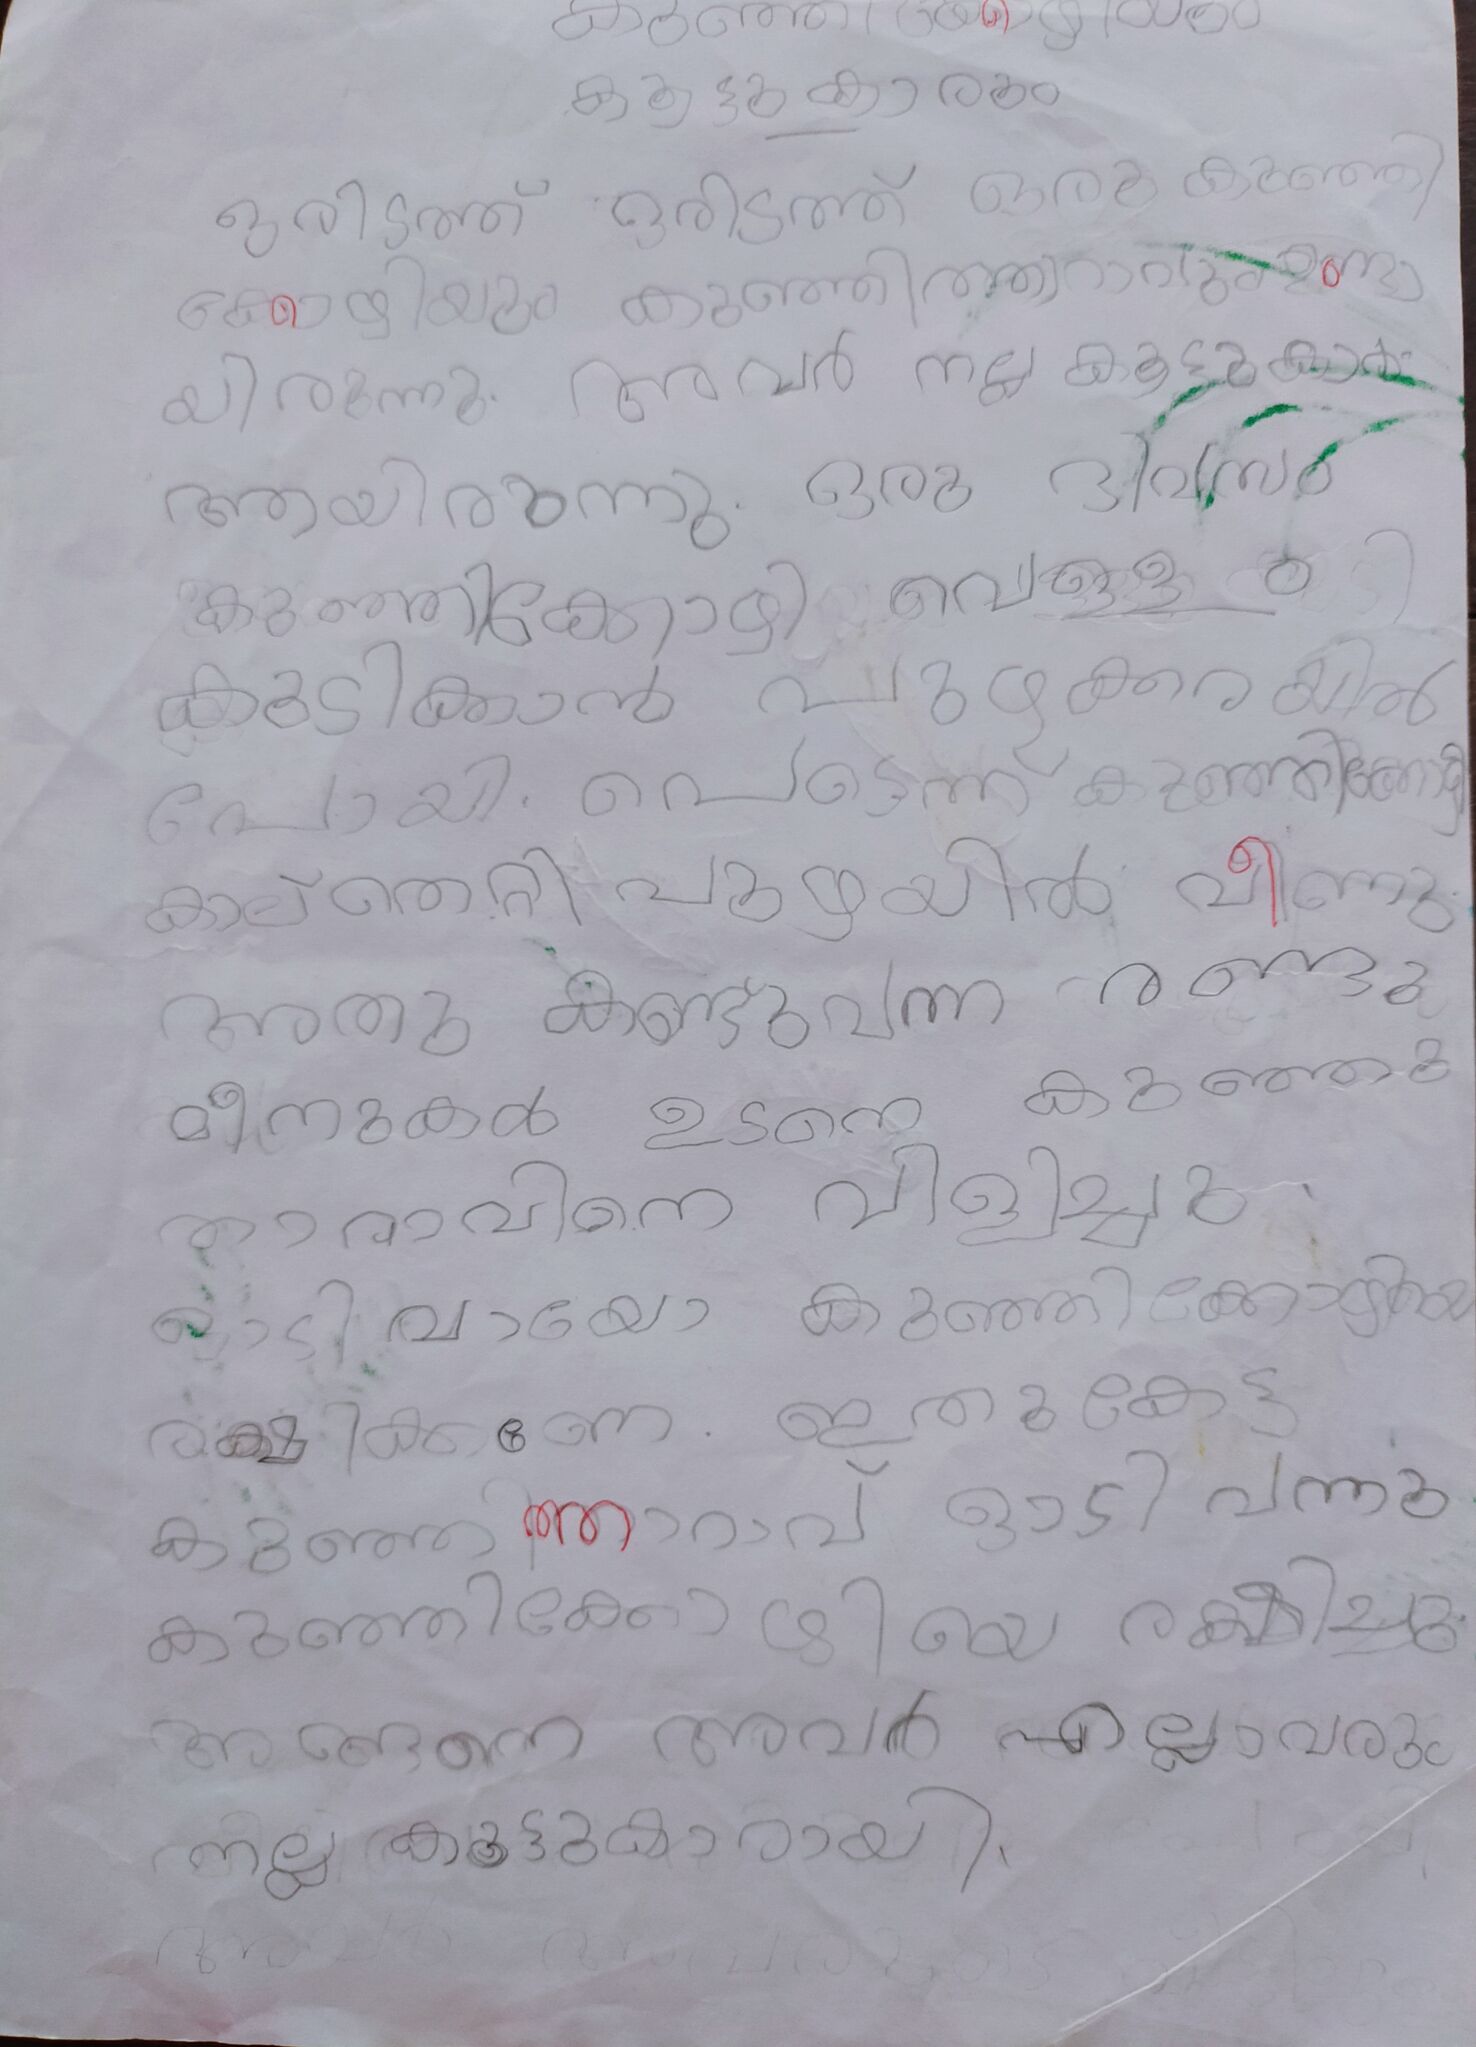 കുഞ്ഞിക്കോഴിയും
കൂട്ടുകാരും
ഒരിടത്ത് ഒരിടത്ത് ഒരു കുഞ്ഞി
ക്കോഴിയും കുഞ്ഞിത്താറാവും ഉണ്ടാ
യിരുന്നു. അവർ നല്ല കൂട്ടുകാർ
ആയിരുന്നു. ഒരു ദിവസം
കുഞ്ഞിക്കോഴി വെള്ളം
കുടിക്കാൻ പുഴക്കരയിൽ
പോയി. പെട്ടെന്ന് കുഞ്ഞിക്കോഴി
കാല് തെറ്റി പുഴയിൽ വീണു.
അതു കണ്ടുവന്ന രണ്ടു
മീനുകൾ ഉടനെ കുഞ്ഞു
താറാവിനെ വിളിച്ചു.
ഓടി വായോ കുഞ്ഞിക്കോഴിയെ
രക്ഷിക്കണേ. ഇതുകേട്ട
കുഞ്ഞിത്താറാവ് ഓടി വന്നു
കുഞ്ഞിക്കോഴിയെ രക്ഷിച്ചു.
അങ്ങനെ അവർ എല്ലാവരും
നല്ല കൂട്ടുകാരായി.